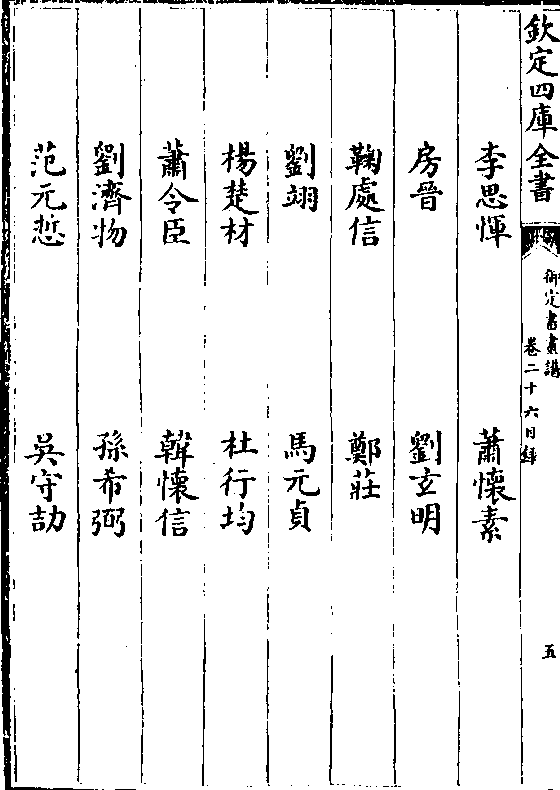 欽定四庫全書
御定書畫譜
卷二十六目錄
五
李思惲 蕭懷素
房晉 劉玄明
鞠處信 鄭莊
劉翊 馬元貞
楊楚材 杜行均
蕭令臣 韓懷信
劉濟物 孫希弼
范元悊 吳守劼